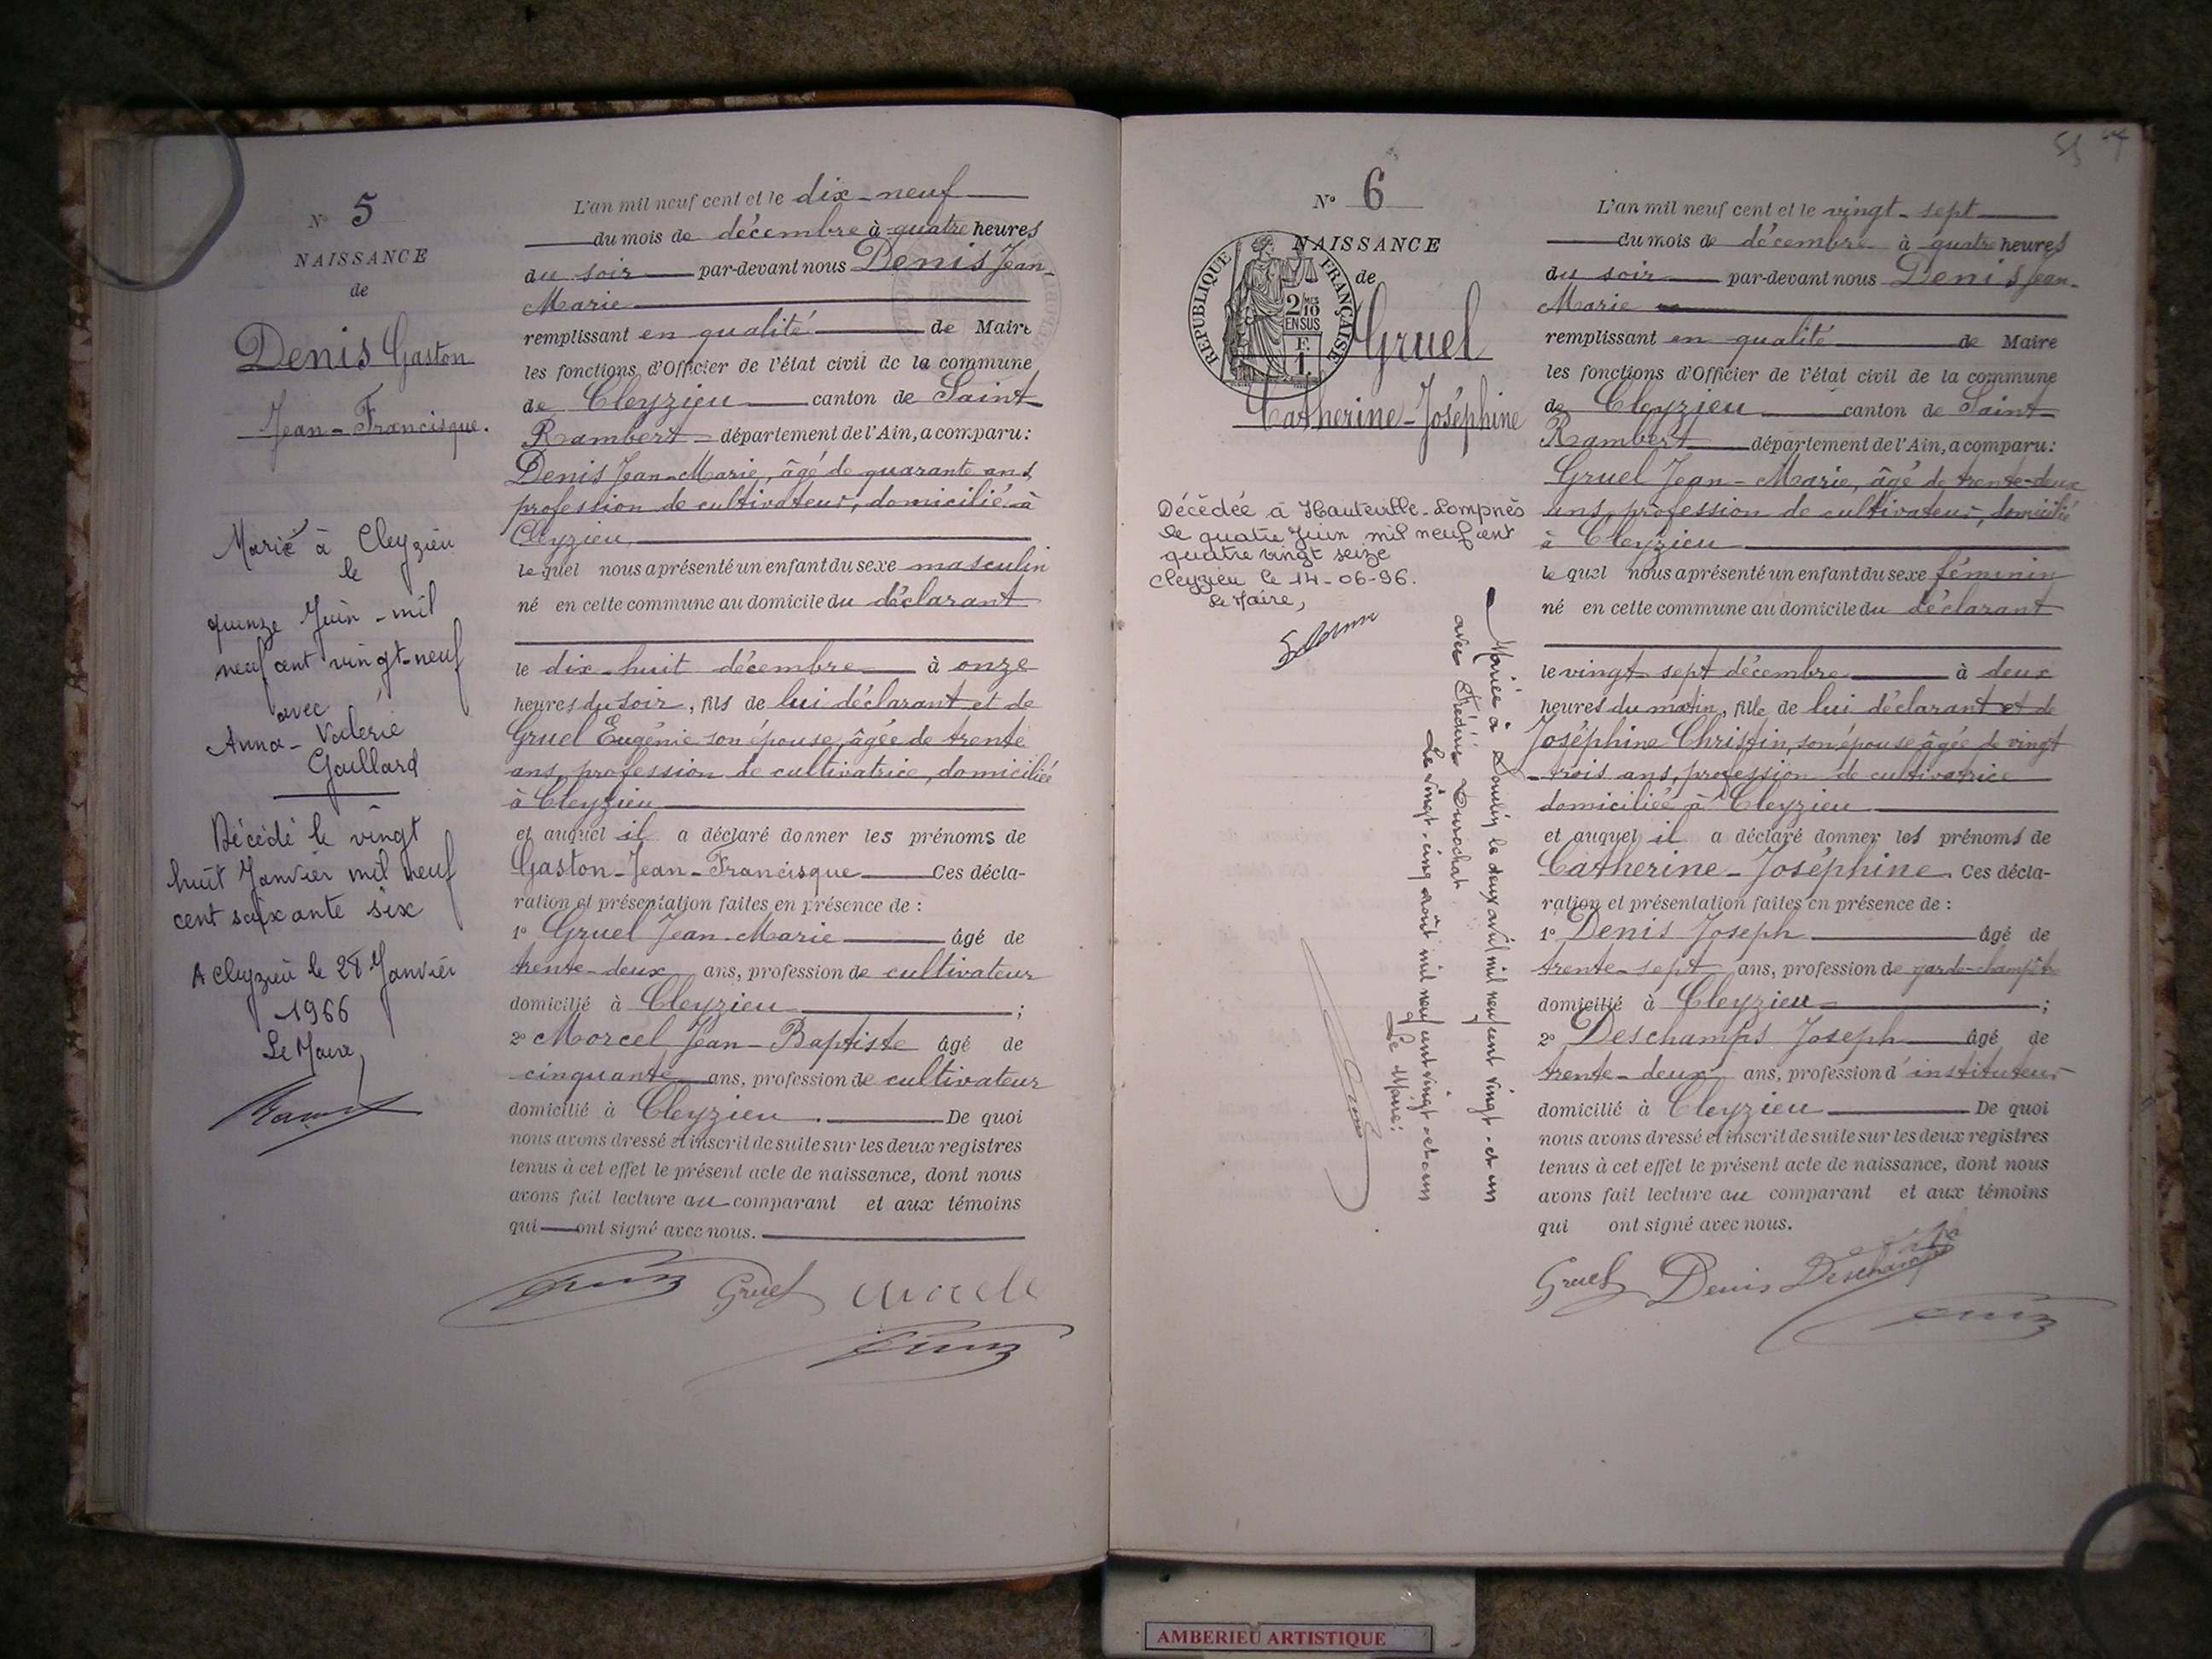 N° 5
NAISSANCE
de
Denis Gaston
Jean-Francisque.
Marié à Cleyzieu
le
quinze Juin - mil
neuf cent vingt-neuf
avec
Anna-Valérie
Gaillard
Décédé le vingt
huit Janvier mil neuf
cent soixante six
A Cleyzieu le 28 Janvier
1966
Le Maire,
L'an mil neuf cent et le dix-neuf
du mois de décembre à quatre heures
du soir par-devant nous Denis Jean-
Marie
remplissant en qualité de Maire
les fonctions d'Officier de l'état civil de la commune
de Cleyzieu canton de Saint
Rambert département de l'Ain, a comparu:
Denis Jean-Marie, âgé de quarante ans
profession de cultivateur, domicilié à
Cleyzieu
lequel nous a présenté un enfant du sexe masculin
né en cette commune au domicile du déclarant
le dix-huit décembre à onze
heures du soir, fils de lui déclarant et de
Gruel Eugénie son épouse, âgée de trente
ans, profession de cultivatrice, domiciliée
à Cleyzieu
et auquel il a déclaré donner les prénoms de
Gaston-Jean-Francisque Ces décla-
ration et présentation faites en présence de :
1° Gruel Jean-Marie âgé de
trente-deux ans, profession de cultivateur
domicilié à Cleyzieu ;
2° Morcel Jean-Baptiste âgé de
cinquante ans, profession de cultivateur
domicilié à Cleyzieu. De quoi
nous avons dressé et inscrit de suite sur les deux registres
tenus à cet effet le présent acte de naissance, dont nous
avons fait lecture au comparant et aux témoins
qui ont signé avec nous.
Gruel
N° 6
NAISSANCE
de
REPUBLIQUE FRANÇAISE
2/10 MES
EN SUS
F.
1.
Gruel
Catherine-Joséphine
Décédée à Hauteville-Lompnès
le quatre Juin mil neuf cent
quatre vingt seize
Cleyzieu le 14-06-96.
Le Maire,
Mariée à le deux avril mil neuf cent vingt-et-un
avec Frédéric Durochat
Le vingt-cinq août mil neuf cent vingt-et-un
Le Maire:
L'an mil neuf cent et le vingt-sept
du mois de décembre à quatre heures
du soir par-devant nous Denis Jean-
Marie
remplissant en qualité de Maire
les fonctions d'Officier de l'état civil de la commune
de Cleyzieu canton de Saint
Rambert département de l'Ain, a comparu:
Gruel Jean-Marie, âgé de trente-deux
ans, profession de cultivateur, domicilié
à Cleyzieu
lequel nous a présenté un enfant du sexe féminin
né en cette commune au domicile du déclarant
le vingt sept décembre à deux
heures du matin, fille de lui déclarant et de
Joséphine Christin, son épouse âgée de vingt
-trois ans, profession de cultivatrice
domiciliée à Cleyzieu
et auquel il a déclaré donner les prénoms de
Catherine-Joséphine. Ces décla-
ration et présentation faites en présence de :
1° Denis Joseph âgé de
trente-sept ans, profession de garde-champêtre
domicilié à Cleyzieu ;
2° Deschamps Joseph âgé de
trente-deux ans, profession d'instituteur
domicilié à Cleyzieu De quoi
nous avons dressé et inscrit de suite sur les deux registres
tenus à cet effet le présent acte de naissance, dont nous
avons fait lecture au comparant et aux témoins
qui ont signé avec nous.
Gruel Denis Deschamps
AMBERIEU ARTISTIQUE